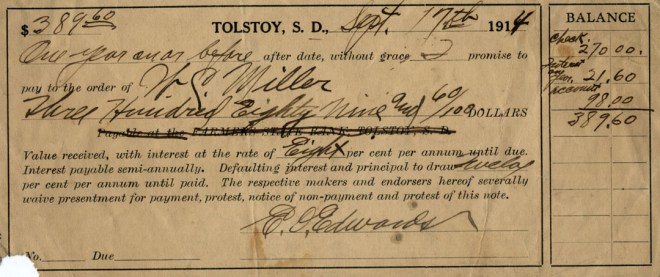 $ 389.60 TOLSTOY, S. D., Sept. 17th 1914
One year on or before after date, without grace I promise to
pay to the order of W S Miller
Three Hundred Eighty Nine and 60/100 DOLLARS
Payable at the FARMERS STATE BANK, TOLSTOY, S. D.
Value received, with interest at the rate of Eight per cent per annum until due.
Interest payable semi-annually. Defaulting interest and principal to draw twelve
per cent per annum until paid. The respective makers and endorsers hereof severally
waive presentment for payment, protest, notice of non-payment and protest of this note.
E. G. Edwards
No. Due
BALANCE
Check. 270.00.
Interest 21.60
account 98.00
389.60